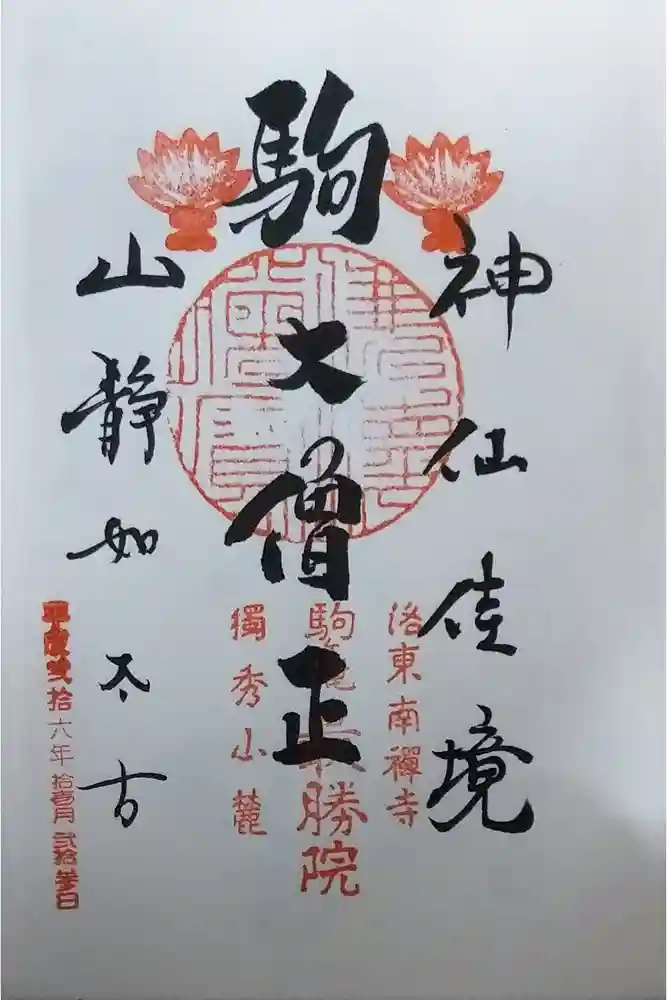 神仙佳境
駒大僧正
山静如太古
洛東南禪寺
駒最勝院
獨秀小麓
平成弐拾六年拾壹月弐拾参日